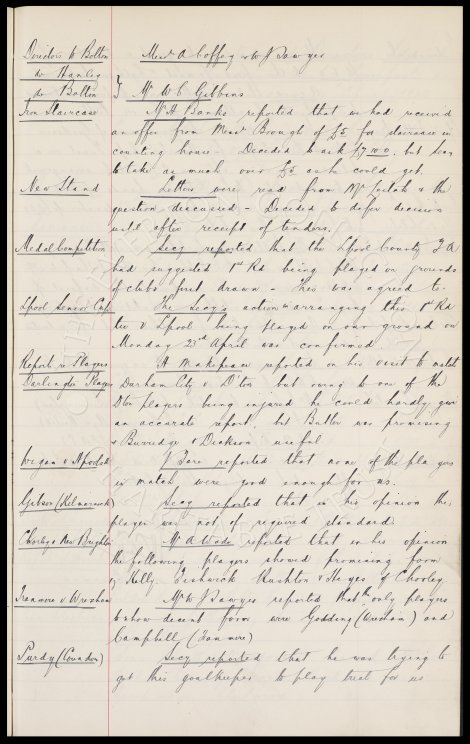 Directors to Bolton Messrs A Coffey & W J Sawyer
do Hanley
do Bolton } Mr W C Gibbins
Iron Staircase Mr H Banks reported that we had received
an offer from Messrs Brough of £5 for staircase in
counting house – Decided to ask £7.10.0. but Secy
to take as much over £5 as he could get.
New Stand Letters were read from Mr Leitch & the
question discussed – Decided to defer decision
until after receipt of tenders.
Medal Competition Secy reported that the Lpool County F A
had suggested 1st Rd being played on grounds
of clubs first drawn – This was agreed to.
Lpool Senior Cup The Secy's action in arranging this 1st Rd
tie v Lpool being played on our ground on
Monday 23rd April was confirmed.
Report re Players H Makepeace reported on his visit to match
Darlington Players Durham City v. D'ton but owing to one of the
Dton players being injured he could hardly give
an accurate report, but Butler was promising
& Burridge & Dickson useful
Wigan v Stpodoch J Bore reported that none of the players
in match were good enough for us.
Gibson (Kilmarnock) Secy reported that in his opinion the
player was not of required standard
Chorley v New Brighton Mr A Wade reported that in his opinion
the following players showed promising form
Kelly Fishwick Rushton & Hayes of Chorley
Tranmere v Wrexham Mr W J Sawyer reported that the only players
to show decent form were Godding (Wrexham) and
Campbell (Tranmere)
Purdy (Coundon) Secy reported that he was trying to
get this goalkeeper to play trial for us